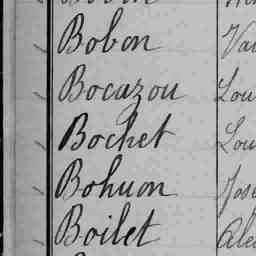 Bobon
Bocazou Lou
Bochet Lou
Bohuon José
Boilet Ale